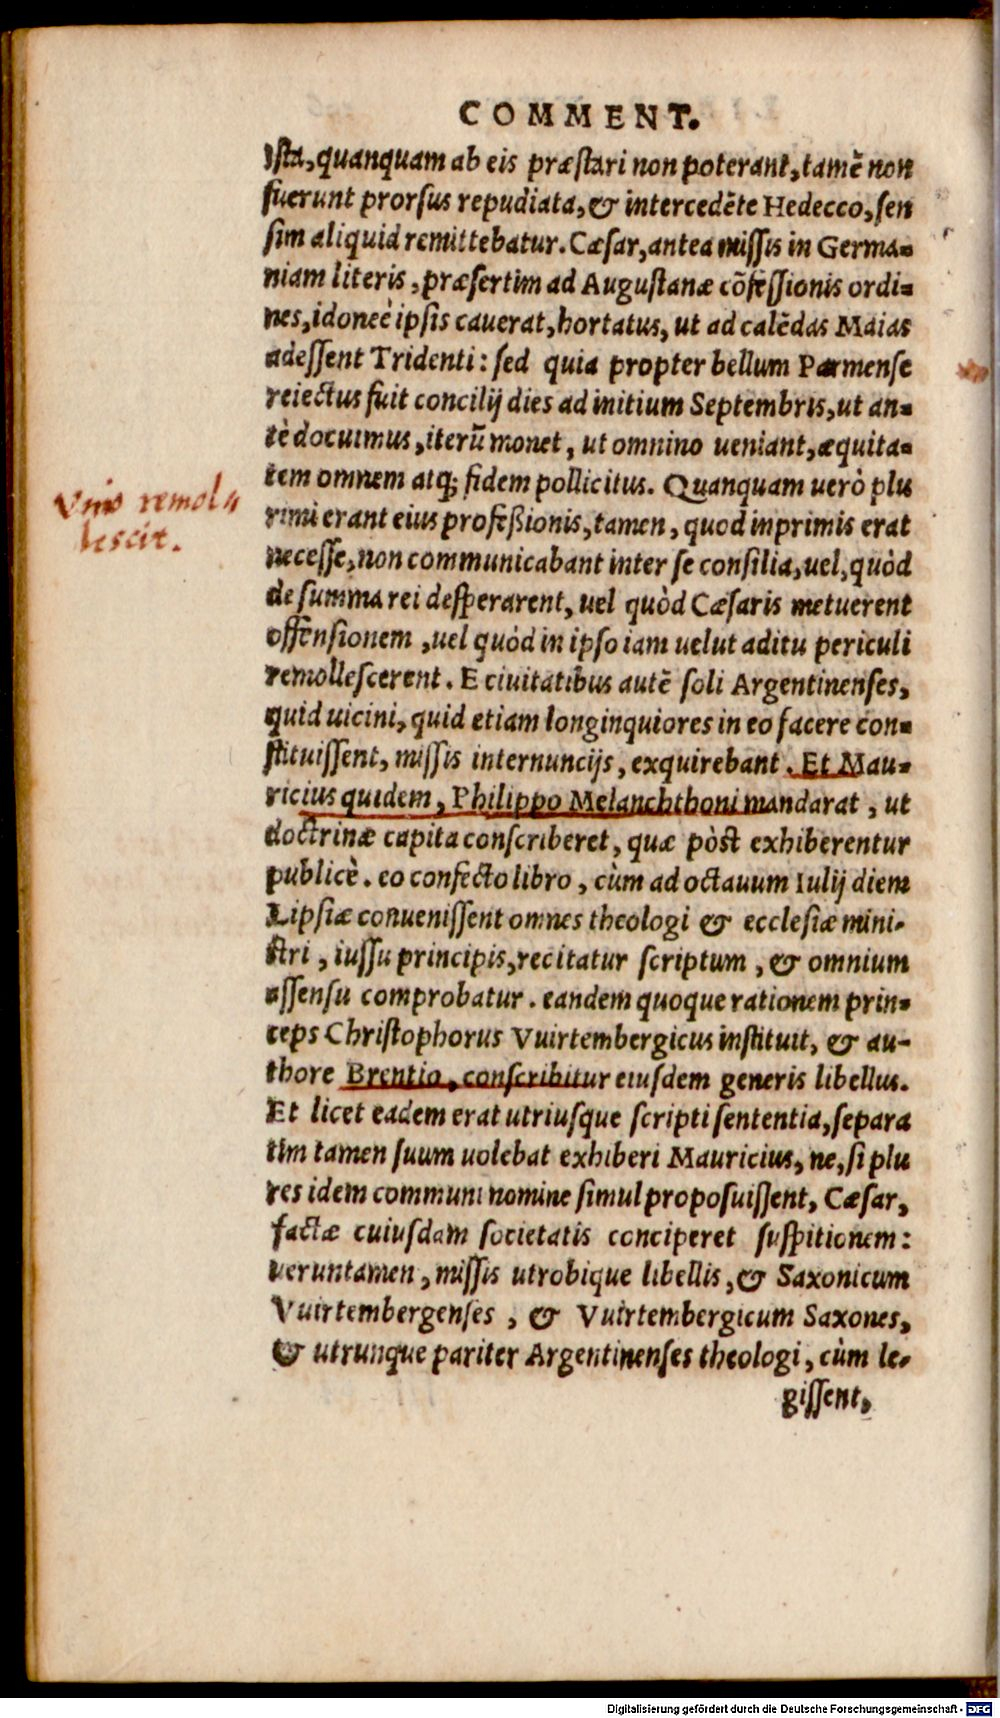 COMMENT.
Ista, quanquam ab eis præstari non poterant, tamē non
fuerunt prorsus repudiata, & intercedēte Hedecco, sen
sim aliquid remittebatur. Cæsar, antea missis in Germa-
niam literis, præsertim ad Augustanæ cōfessionis ordi-
nes, idoneè ipsis cauerat, hortatus, ut ad calēdas Maias
adessent Tridenti: sed quia propter bellum Parmense
reiectus fuit concilij dies ad initium Septembris, ut an-
tè docuimus, iterū monet, ut omnino ueniant, æquita-
tem omnem atq; fidem pollicitus. Quanquam uerò plu
rimi erant eius profeßionis, tamen, quod inprimis erat
necesse, non communicabant inter se consilia, uel, quòd
de summa rei desperarent, uel quòd Cæsaris metuerent
offensionem, uel quòd in ipso iam uelut aditu periculi
remollescerent. E ciuitatibus autē soli Argentinenses,
quid uicini, quid etiam longinquiores in eo facere con-
stituissent, missis internuncijs, exquirebant. Et Mau-
ricius quidem, Philippo Melanchthoni mandarat, ut
doctrinæ capita conscriberet, quæ pòst exhiberentur
publicè. eo confecto libro, cùm ad octauum Iulij diem
Lipsiæ conuenissent omnes theologi & ecclesiæ mini-
stri, iussu principis, recitatur scriptum, & omnium
assensu comprobatur. eandem quoque rationem prin-
ceps Christophorus Vuirtembergicus instituit, & au-
thore Brentio, conscribitur eiusdem generis libellus.
Et licet eadem erat utriusque scripti sententia, separa
tim tamen suum uolebat exhiberi Mauricius, ne, si plu
res idem communi nomine simul proposuissent, Cæsar,
factæ cuiusdam societatis conciperet suspitionem:
ueruntamen, missis utrobique libellis, & Saxonicum
Vuirtembergenses, & Vuirtembergicum Saxones,
& utrunque pariter Argentinenses theologi, cùm le-
gissent,
remol
lescit.
Digitalisierung gefördert durch die Deutsche Forschungsgemeinschaft - DFG